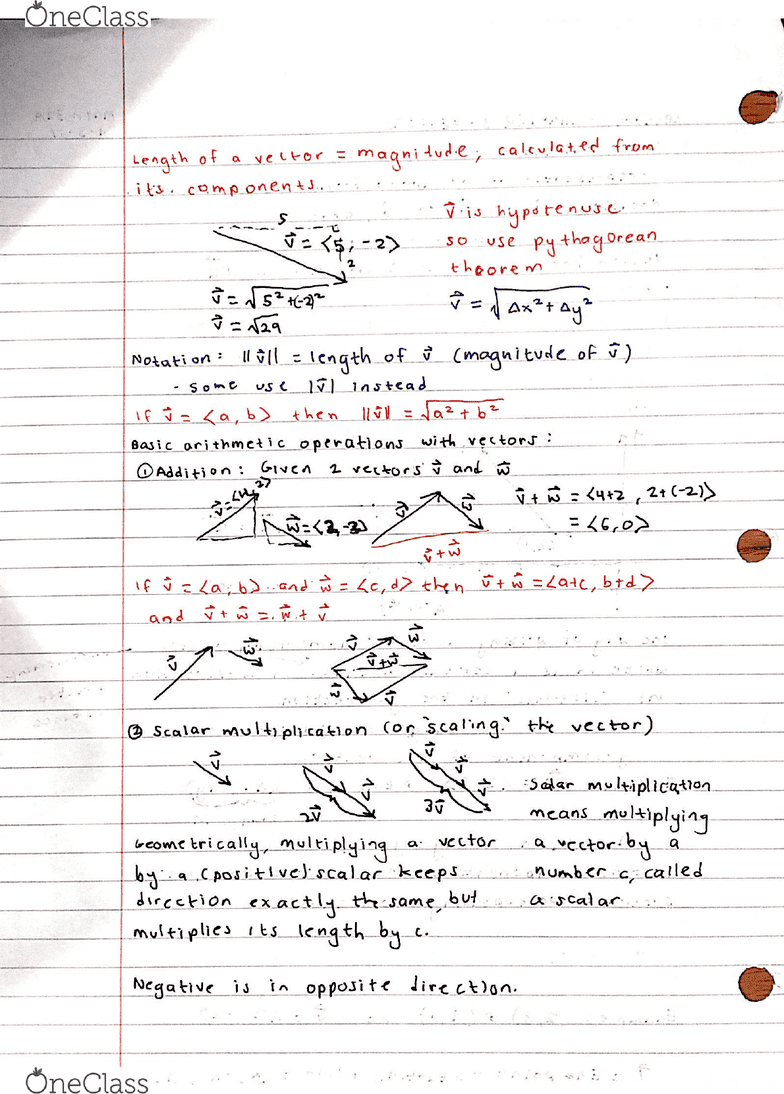 OneClass
Length of a vector = magnitude, calculated from
its components.
5
v⃗ = <5, -2>
2
v⃗ = √5² + (-2)²
v⃗ = √29
v⃗ is hypotenuse
so use pythagorean
theorem
v⃗ = √Δx² + Δy²
Notation: ||v⃗|| = length of v⃗ (magnitude of v⃗)
- some use |v⃗| instead
If v⃗ = <a, b> then ||v⃗|| = √a² + b²
Basic arithmetic operations with vectors:
① Addition: Given 2 vectors v⃗ and w⃗
v⃗ = <4, 2>
w⃗ = <2, -2>
v⃗
w⃗
v⃗ + w⃗
v⃗ + w⃗ = <4+2, 2+(-2)>
= <6, 0>
If v⃗ = <a, b> and w⃗ = <c, d> then v⃗ + w⃗ = <a+c, b+d>
and v⃗ + w⃗ = w⃗ + v⃗
v⃗
w⃗
v⃗
w⃗
v⃗+w⃗
w⃗
v⃗
② Scalar multiplication (or "scaling" the vector)
v⃗
v⃗
v⃗
2v⃗
v⃗
v⃗
v⃗
3v⃗
Scalar multiplication
means multiplying
a vector by a
number c, called
a scalar
Geometrically, multiplying a vector
by a (positive) scalar keeps
direction exactly the same, but
multiplies its length by c.
Negative is in opposite direction.
OneClass